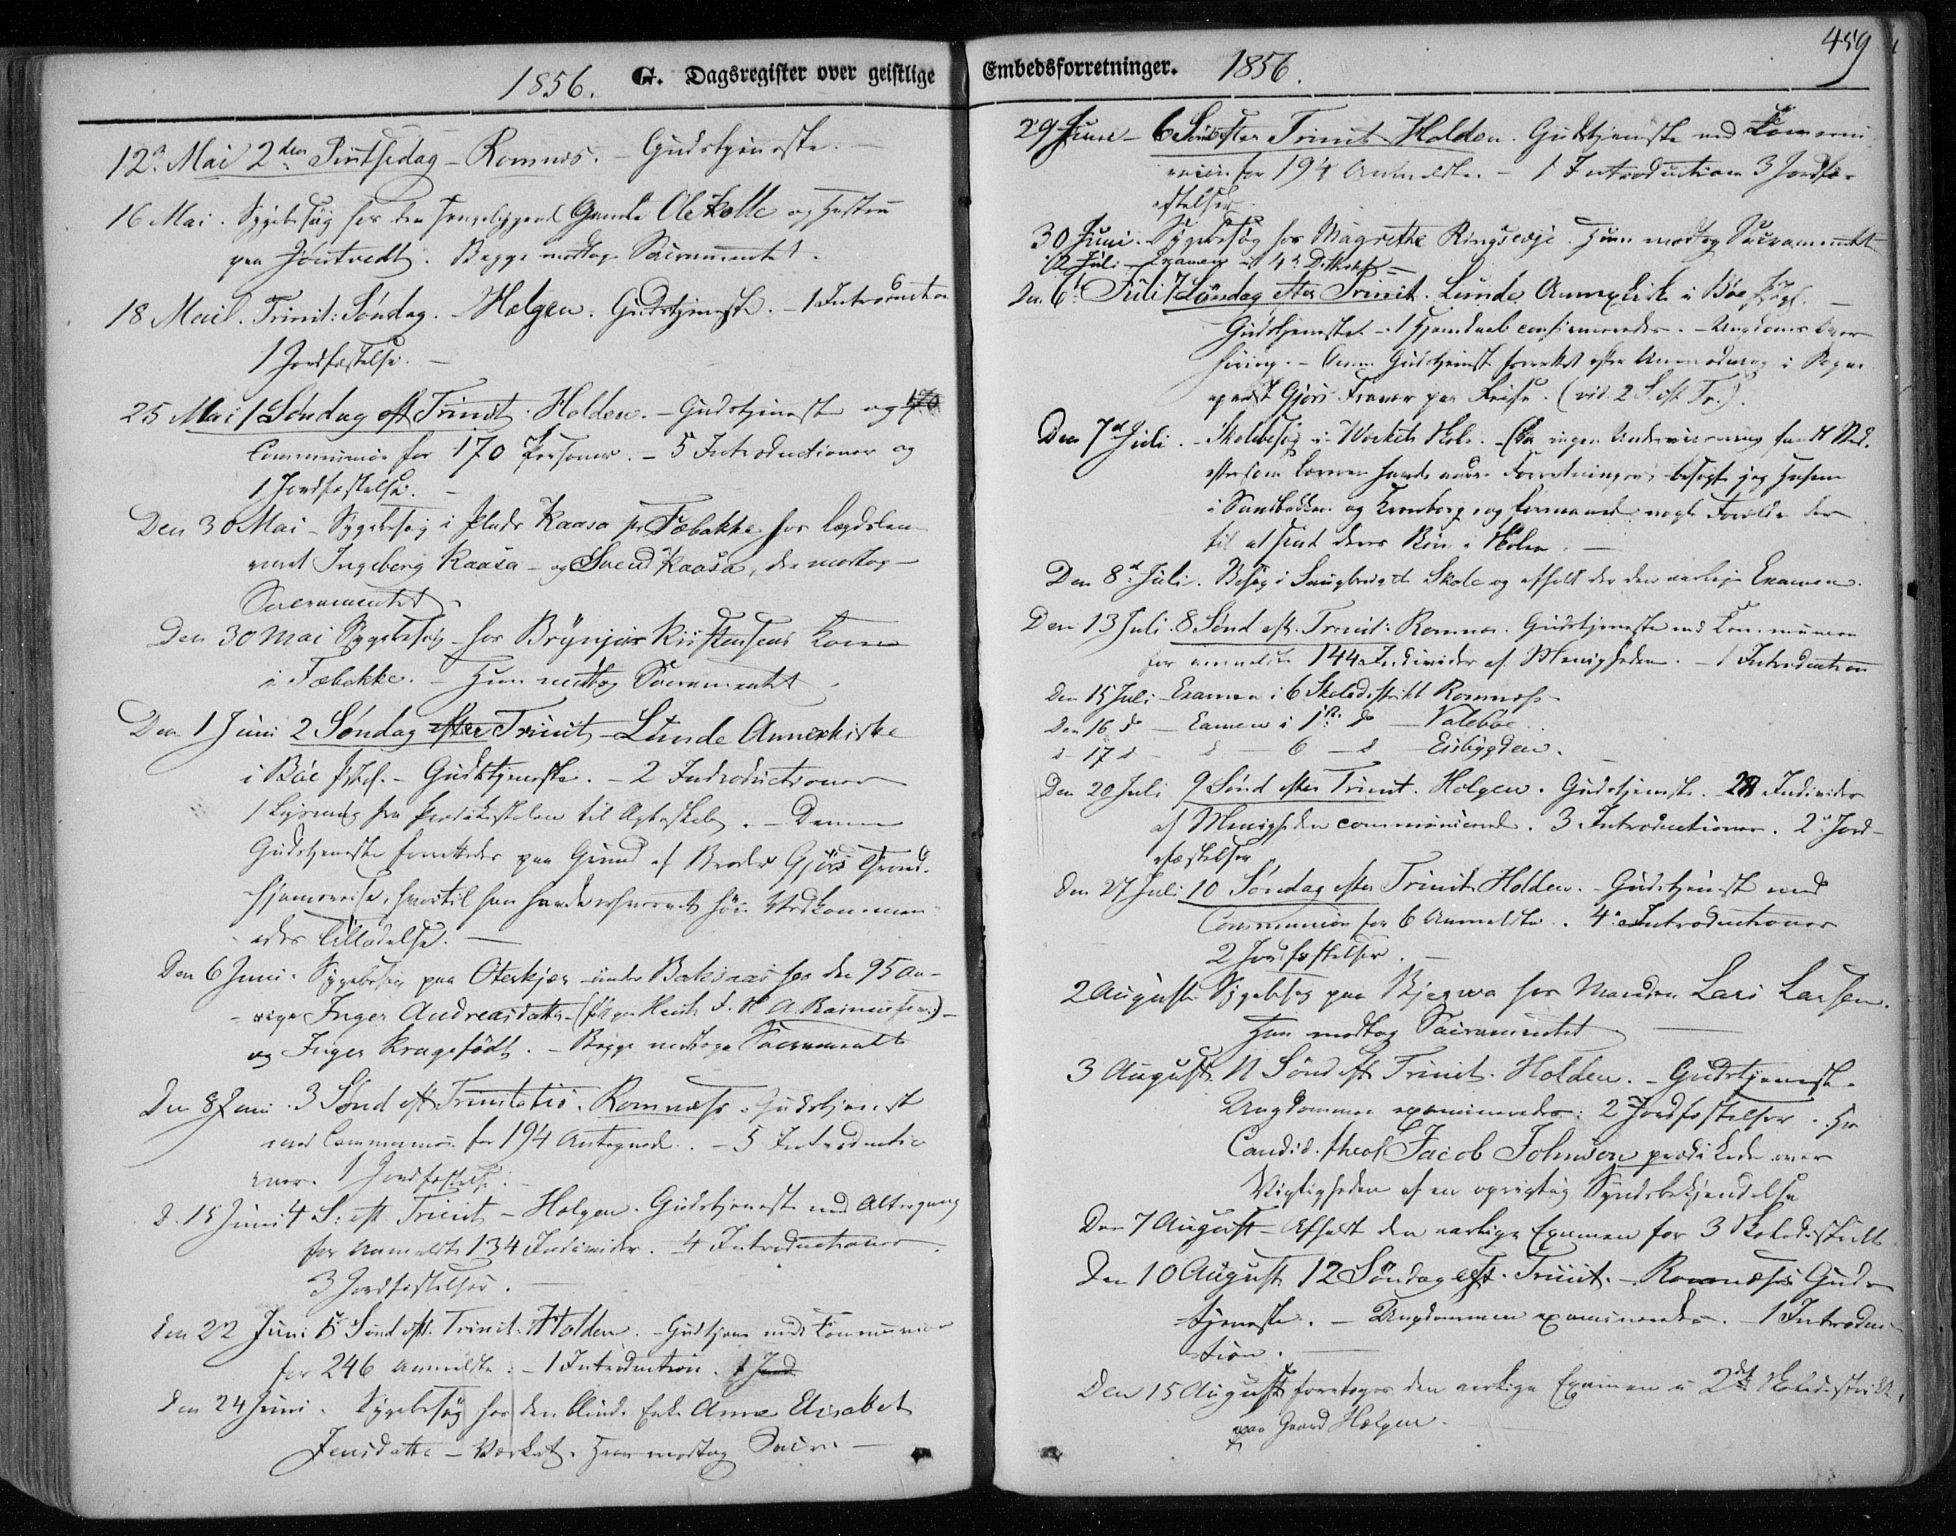 1856. G. Dagsregister over geistlige
12. Mai 2den Pintsedag - Romnes. - Gudstjeneste. -
16 Mai. Sygebesøg hos den sengeliggende Gamle Ole Kolle og Hustru
paa Jøntvedt. Begge modtoge Sacramentet.
18 Mai. Trinit: Søndag. - Helgen. Gudstjeneste. - 1 Introduction
1 Jordfæstelse. -
25 Mai 1 Søndag eft Trinit. Holden. - Gudstjeneste og
Communion for 170 Personer. - 5 Introductioner og
1 Jordfæstelse. -
Den 30 Mai - Sygebesøg i Plads Kaasa Fæbakke hos
Ingeborg Kaasa - og Svend Kaasa, der modtog
Sacramentet.
Den 30 Mai Sygebesøg hos Brynjus Kristensens Kone
i Fæbakke. - Hun modtog Sacramentet.
Den 1 Juni 2 Søndag efter Trinit - Lunde Annexkirke
i Bøe - Gudstjeneste. - 2 Indroductioner
1 Lysning fra Prædikestolen til Ægteskab. - Denne
Gudstjeneste forrettedes paa Grund af Gjørs Trond-
hjemsreise, hvortil han havde erhvervet Vedkommen-
des Tilladelse. -
Den 6 Juni. Sygebesøg paa Oterkjær under Baksaas hos den 95 aa-
rige Inger Andreasdatter
og Inger Kragefødt. - Begge modtoge Sacramentet
Den 8 Juni. 3 Sønd eft Trinitatis. Romnæs. Gudstjeneste
med Communion for 194 Antegnede. - 5 Introductio-
ner. 1 Jordfæstelse.
D. 15 Juni 4 S: eft. Trinit - Helgen. Gudstjeneste med Altergang
for Anmeldte 134 Individer. 4 Introductioner.
3 Jordfæstelser. -
Den 22 Juni 5 Sønd eft. Trinit. Holden. - Gudstjen med Communion
for 246 anmeldte. - 1 Introduction. 1 Jord
Den 24 Juni. Sygebesøg hos den blinde Enke Anne Elisabet
Jensdatter - Værket. Hun modtog Sacr. -
Embedsforretninger. 1856. 459
29 Juni - 6 Sønd efter Trinit Holden. Gudstjeneste med Commu-
nion for 194 Anmeldte. - 1 Introduction 3 Jordfæ-
stelser.
30 Juni. Sygebesøg hos Magrethe Ringsevje. Hun modtog Sacramentet
Juli - Examen i 4 Distrikt -
Den 6 Juli 7 Søndag efter Trinit. Lunde Annexkirke i Bøe -
Gudstjeneste - 1 confirmeredes. - Ungdoms Over-
høring. - Denne Gudstjeneste forrettet efter Anmodning i Sogne-
præst Gjørs Fravær paa Reise. (vid. 2 S. eft Tr.)
Den 7 Juli. - Skolebesøg i Værkets Skole. - Da ingen Underviisning fandt Sted,
eftersom Læreren havde andre Forretninger, besøgte jeg Husene
i Sandbakken og Kronborg og formanede nogle Forældre der
til at sende deres Børn i Skolen. -
Den 8 Juli. Besøg i Skole og afholdt der den aarlige Examen.
Den 13 Juli. 8 Sønd eft. Trinit: Romnes. Gudstjeneste med Communion
for anmeldte 144 Individer af Menigheden. - 1 Introduction
Den 15 Juli - Examen i 6 Skoledistrikt Romnæs
Den 16 do - Examen i 1ste do - Valebøe.
d - 17 d - d - 6 - d - Eisbygden.
Den 20 Juli 9 Sønd efter Trinit. Helgen. Gudstjeneste. 28 Individer
af Menigheden communicerede. 3 Introductioner. 2 Jord-
fæstelser
Den 27 Juli 10 Søndag efter Trinit Holden. - Gudstjeneste med
Communion for 6 Anmeldte. 4 Introductioner
2 Jordfæstelser. -
2 August Sygebesøg paa hos Manden Lars Larsen.
Han modtog Sacramentet
3 August 11 Sønd eft Trinit. Holden. - Gudstjeneste.
Ungdommen examineredes. 2 Jordfæstelser. Hr
Candid. theol Jacob Johnson prædikede over
Vigtigheden af en oprigtig Syndsbekjendelse
Den 7 August - Afholdt den aarlige Examen for 3 Skoledistrikt.
Den 10 August 12 Søndag eft. Trinit. - Romnæss Guds-
tjeneste. - Ungdommen examineredes. - 1 Introduc-
tion. -
Den 15 August foretoges den aarlige Examen i 2det Skoledistrikt
paa Gaard Helgen.